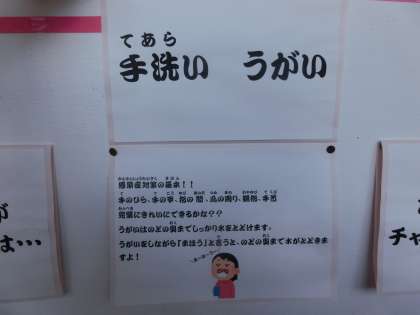 てあら
手洗い　うがい
が
は…
かんせんしょうたいさく きほん
感染症対策の基本！！
手のひら、手の甲、指の間、爪の周り、親指、手首
完璧にきれいにできるかな？？
うがいはのどの奥までしっかり水をとどけます。
うがいをしながら「まほう」と言うと、のどの奥まで水がとどきま
すよ！
チャ